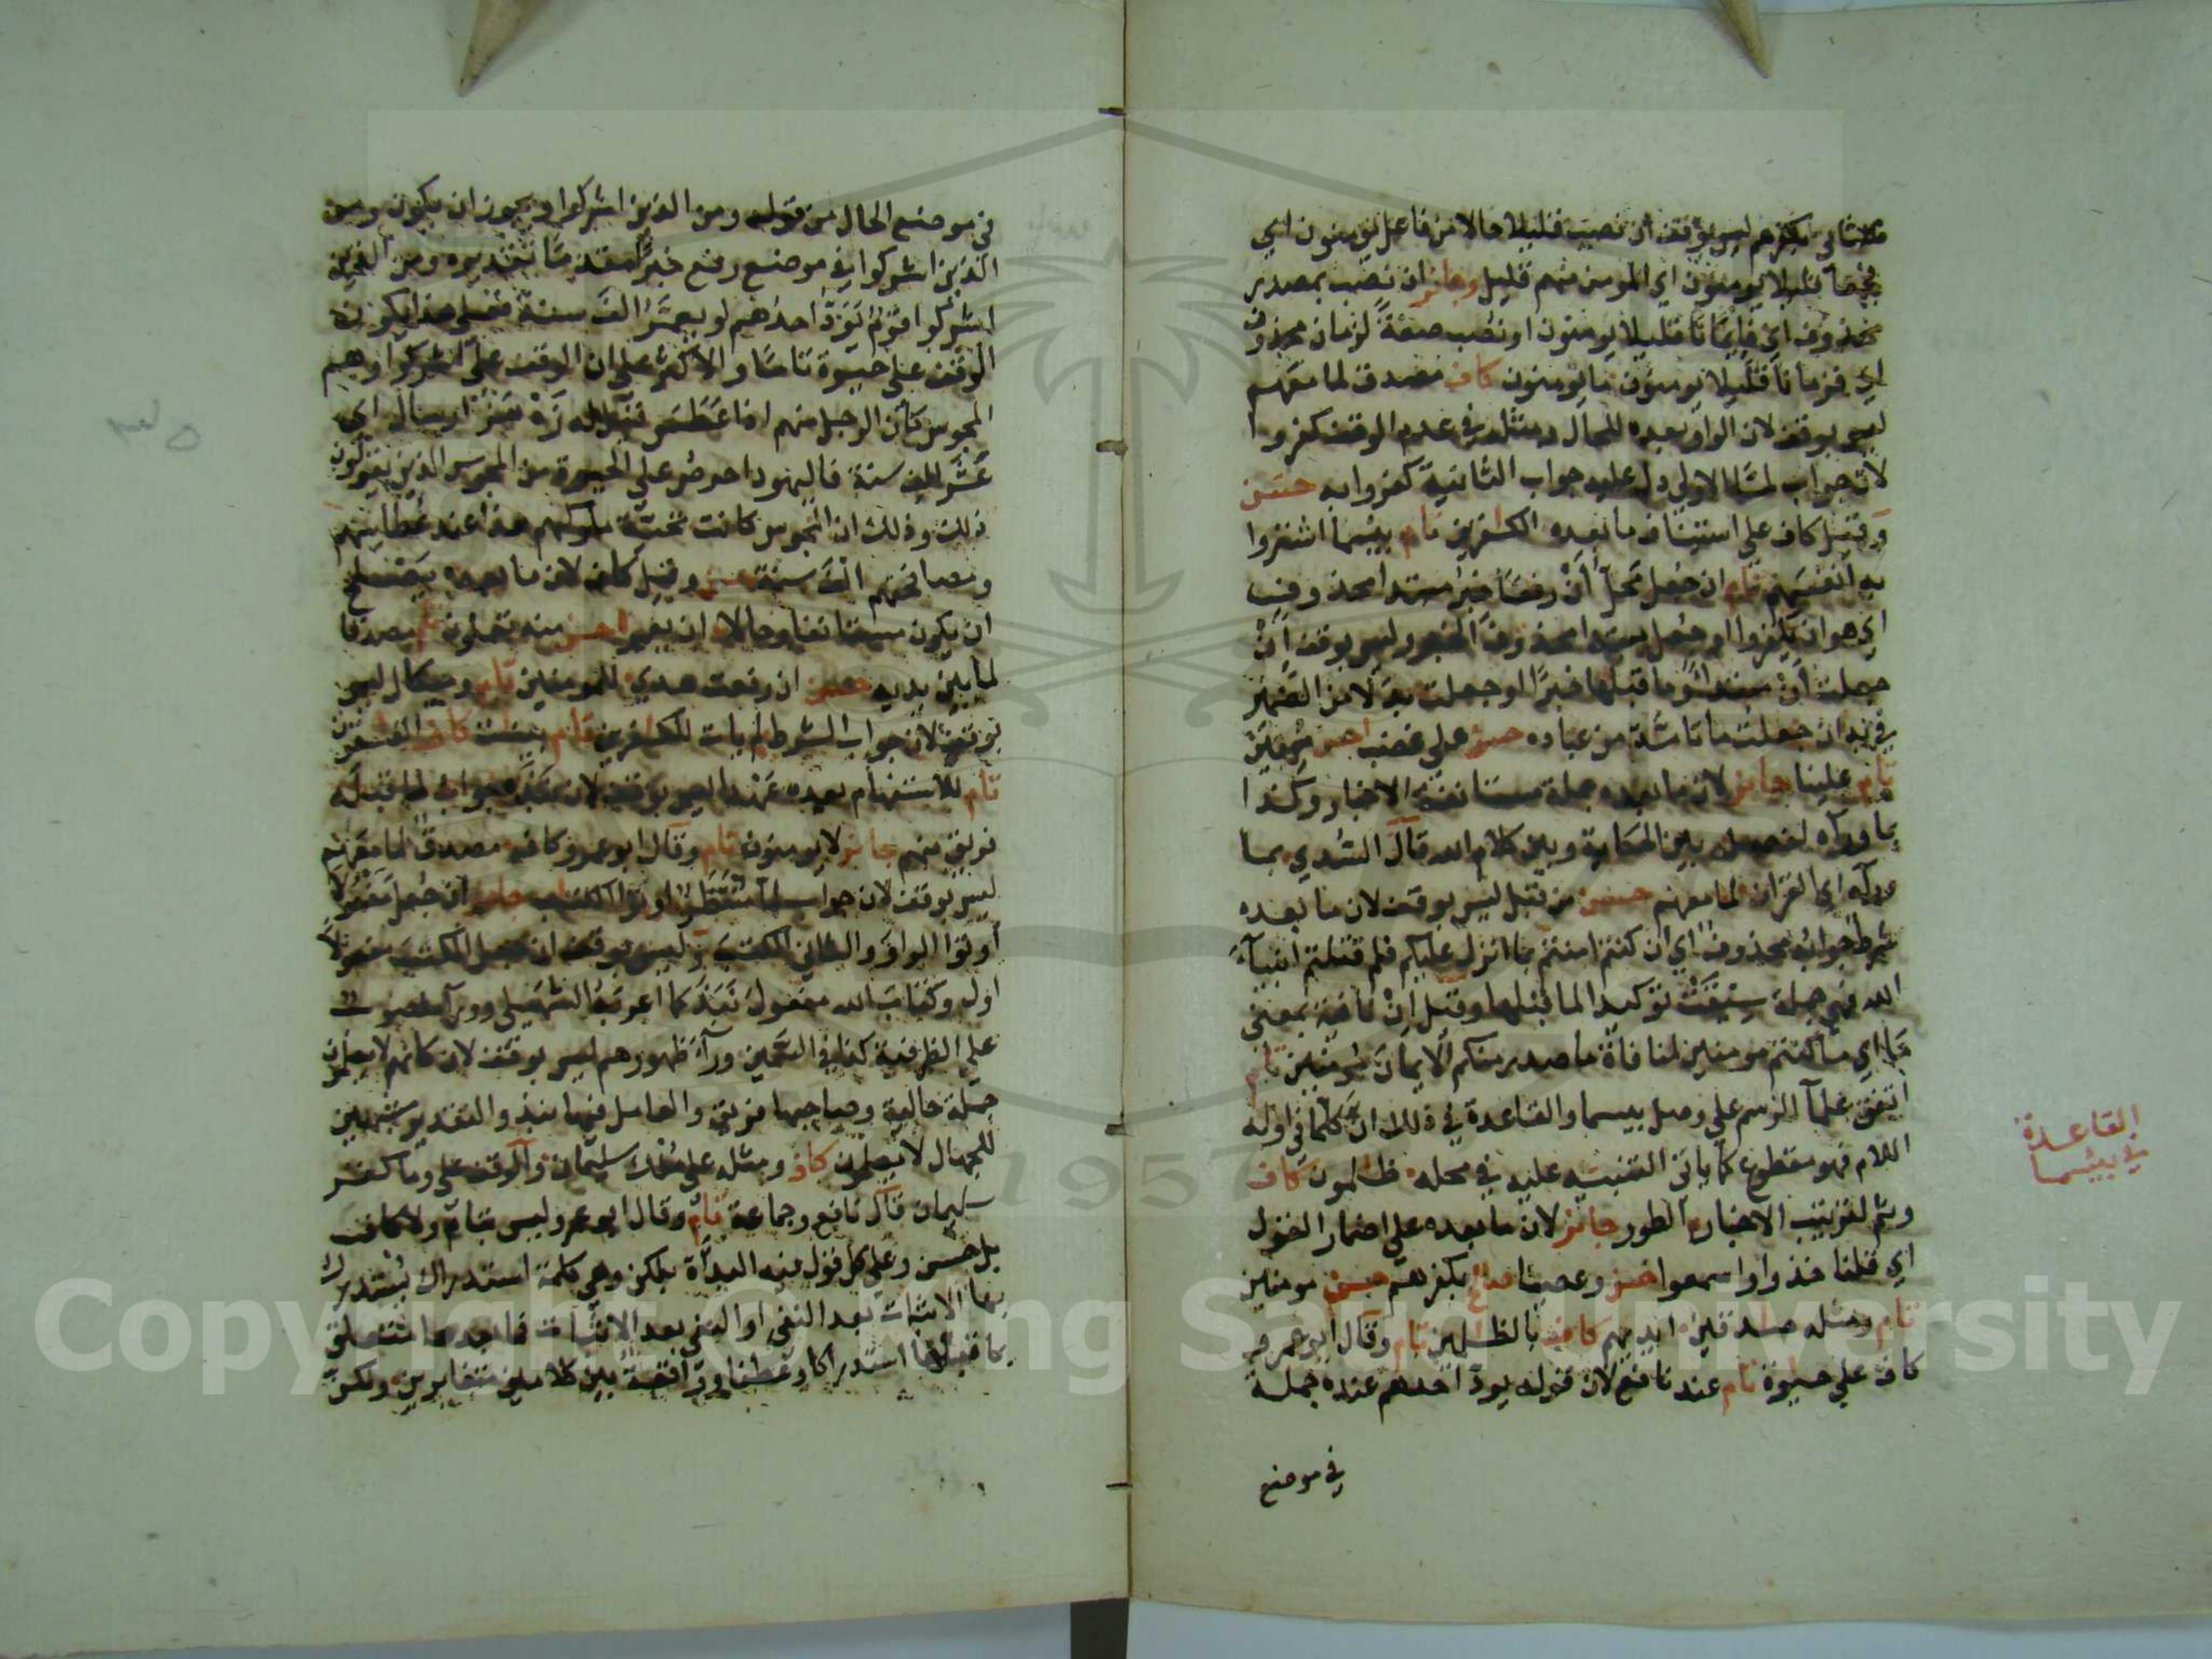 بكفرهم ليس بوقف ان نصبت قليلا حالا من فاعل يؤمنون اي
فجمعا قليلا يومنون اي المومن منهم قليل وجائز ان نصب بمصدر
محذوف اي فايمانا قليلا يومنون او نصب صفة لزمان محذوف
اي فزمانا قليلا يومنون ما يومنون كاف مصدق لما معهم
ليس بوقف لان الواو بعده للحال ومثله في عدم الوقف كفروا
لان جواب لما الاولى دل عليه جواب الثانية كفروا به حسن
وقيل كاف على استيناف ما بعده الكفرين تام بيسما اشتروا
به انفسهم تام ان جعل محل أن رفعا خبر مبتدا محذوف
اي هو ان يكفروا او جعل مبتدا محذوف الخبر وليس بوقف ان
جعلت أن مبتدا وما قبلها خبرا او جعلت بدلا من الضمير
في به ان جعلت ما تامة من عباده حسن على غضب احسن مهين
تام علينا جائز لان ما بعده جملة مستانفة الاخبار وكذا
بما وراه لفصله بين الحكاية وبين كلام الله قال السدي بما
وراه اي القران لما معهم حسن من قبل ليس بوقف لان ما بعده
شرط جوابه محذوف اي ان كنتم امنتم بما انزل عليكم فلم قتلتم انبيآ
الله فهي جملة سيقت توكيدا لما قبلها وقيل إن نافية بمعنى
ما اي ما كنتم مومنين لمنافاة ما صدر منكم الايمان مومنين تام
اتفق علمآ الرسم على وصل بيسما والقاعدة في ذلك ان كلما في اوله
اللام فهو مقطوع كما ياتي التنبيه عليه في محله ظلمون كاف
وثم لترتيب الاخبار الطور جائز لان ما بعده على اضمار القول
اي قلنا خذوا واسمعوا حسن وعصينا صالح بكفرهم حسن مومنين
تام ومثله صدقين ايديهم كاف بالظلمين تام وقال ابو عمرو
كاف على حيوة تام عند نافع لان قوله يود احدهم عنده جملة
في موضع
القاعدة
في بيسما
في موضع الحال من قوله ومن الذين اشركوا ويجوز ان يكون ومن
الذين اشركوا في موضع رفع خبرا مقدما تقديره ومن الذين
اشركوا قوم يود احدهم لو يعمر الف سنة فعلى هذا يكون
الوقف على حيوة تاما والاكثر على ان الوقف على اشركوا وهم
المجوس كان الرجل منهم اذا عطس قيل له زه هزار سال اي
عش الف سنة فاليهود احرص على الحيوة من المجوس الذين يقولون
ذلك وذلك ان المجوس كانت تحية ملوكهم هذا عند عطاسهم
ومصافحتهم الف سنة حسن وقيل كاف لان ما بعده يصلح
ان يكون مستانفا وحالا ان يعمر احسن منه يعملون تام مصدقا
لما بين يديه حسن ان رفعت هدي للمومنين تام وميكال ليس
بوقف لان جواب الشرط لم يات للكفرين تام بينت كاف الفسقون
تام للاستفهام بعده عهدا ليس بوقف لان نبذه جواب لما قبله
فريق منهم جائز لا يومنون تام وقال ابو عمرو كاف مصدق لما معهم
ليس بوقف لان جواب لما منتظر اوتوا الكتب جائز ان جعل مفعول
اوتوا الواو والثاني الكتب وليس بوقف ان جعل الكتب مفعولا
اول وكتاب الله مفعول نبذ كما اعربه السهيلي وورآ منصوب
على الظرفية كذا في السمين ورآ ظهورهم ليس بوقف لان كانهم لا يعلمون
جملة حالية وصاحبها فريق والعامل فيها نبذ والتقدير مشبهين
للجهال لا يعلمون كاف ومثله على ملك سليمان والوقف على وما كفر
سليمان قال نافع وجماعة تام وقال ابو عمرو ليس بتام ولا كاف
بل حسن وعلى كل قول فيه البداة بلكن وهي كلمة استدراك يستدرك
بها الاثبات بعد النفي او النفي بعد الاثبات فما بعدها متعلق
بما قبلها استدراكا وعطفا وواقعة بين كلامين متغايرين ولكن
Copyright © King Saud University
1957